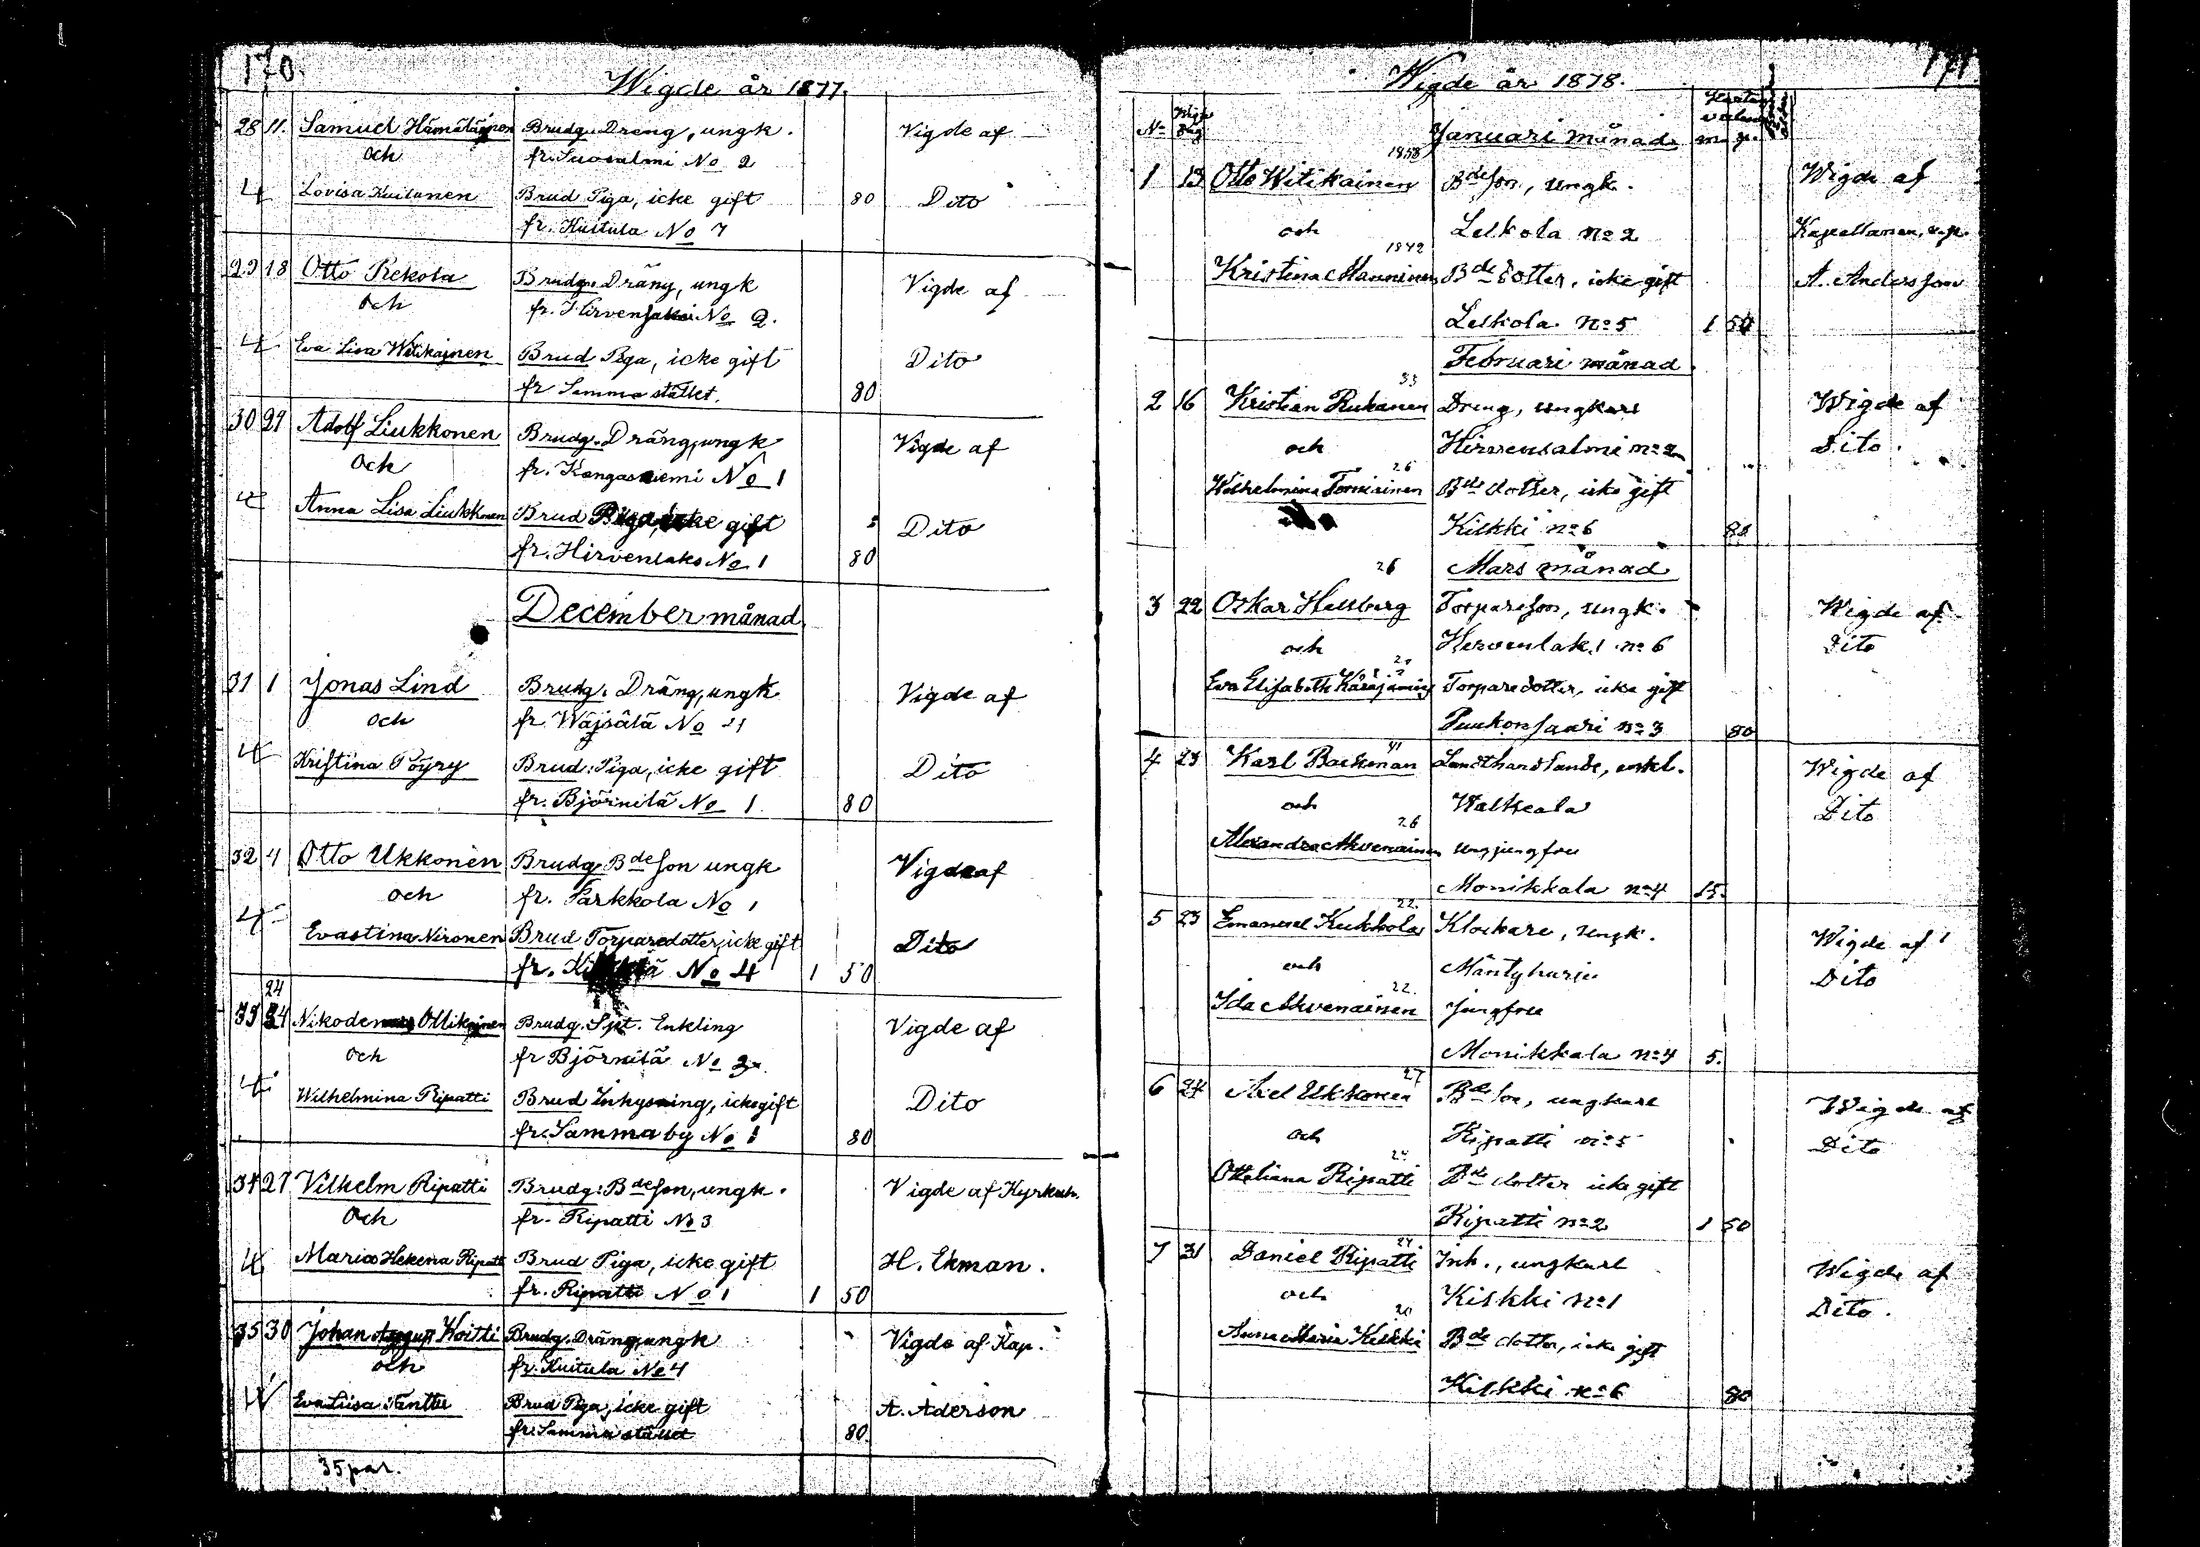 170.
Wigde år 1877.
28 11. Samuel Hämäläinen Brudg. Dreng, ungk. Vigde af
och fr. Suosalmi No 2
4 Lovisa Kuitunen Brud Piga, icke gift 80 Dito
fr. Kuitula No 7
29 18 Otto Rekola Brudg. Dräng, ungk Vigde af
och fr. Hirvensalmi No 2.
4 Eva Lisa Witikainen Brud Piga, icke gift Dito
fr Samma stället. 80
30 29 Adolf Liukkonen Brudg. Dräng, ungk Vigde af
och fr. Kangasniemi No 1
4 Anna Lisa Liukkonen Brud Piga, icke gift Dito
fr. Hirvenlaks No 1 80
December månad
31 1 Jonas Lind Brudg. Dräng, ungk Vigde af
och fr. Wäjsälä No 21
4 Kristina Pöyry Brud. Piga, icke gift Dito
fr. Björnilä No 1. 80
32 4 Otto Ukkonen Brudg. Bde son ungk Vigde af
och fr. Parkkola No 1
4 Evastina Nironen Brud Torparedotter, icke gift Dito
fr. No 4 1 50
24
33 24 Nikodemus Ollikainen Brudg. Spt. Enkling Vigde af
och fr Björnilä No 2
4 Wilhelmina Ripatti Brud Inhysning, icke gift Dito
fr. Samma by No 1 80
34 27 Vilhelm Ripatti Brudg: Bde son, ungk. Vigde af Kyrkoh.
Och fr. Ripatti No 3
4 Maria Helena Ripatti Brud Piga, icke gift H. Ekman.
fr. Ripatti No 1 1 50
35 30 Johan Koitti Brudg. Dräng, ungk Vigde af Kap.
och fr. Kuitula No 4
4 Eva Liisa Tentter Brud Piga, icke gift A. Aderson
fr. Samma stället 80
35 par.
171
Wigde år 1878.
No Vigs dag Januari månad m. p.
1858
1 13 Otto Witikainen Bde son, ungk. Wigde af
och Lelkola no 2 Kapellanen, v.p.
1842
Kristina Manninen Bde dotter, icke gift A. Andersson
Lelkola no 5 1 50
Februari månad
33
2 16 Kristian Rukanen Dreng, ungkarl Wigde af
och Hirvensalmi no 2 Dito.
26
Wilhelmina Torniainen Bde dotter, icke gift
Kilkki no 6 80
26 Mars månad
3 22 Oskar Hallberg Torpareson, ungk. Wigde af
och Hirvenlaks no 6 Dito
Eva Elisabeth Torparedotter, icke gift
Puukonsaari no 3 80
41
4 23 Karl Backman Landthandlande, enkl. Wigde af
och Walkeala Dito
26
Alexandra Ahvenainen ungjungfru
Monikkala no 4 15.
22.
5 23 Emanuel Kukkola Klockare, ungk. Wigde af
och Mäntyharju Dito
22.
Ida Ahvenainen jungfru
Monikkala no 4 5.
27
6 24 Axel Ukkonen Bde son, ungkarl Wigde af
och Ripatti no 5 Dito
24
Otteliana Ripatti Bde dotter icke gift
Ripatti no 2 1 50
24
7 31 Daniel Ripatti Inh., ungkarl Wigde af
och Kilkki no 1 Dito.
20
Anna Maria Kilkki Bde dotter, icke gift
Kilkki no 6 80